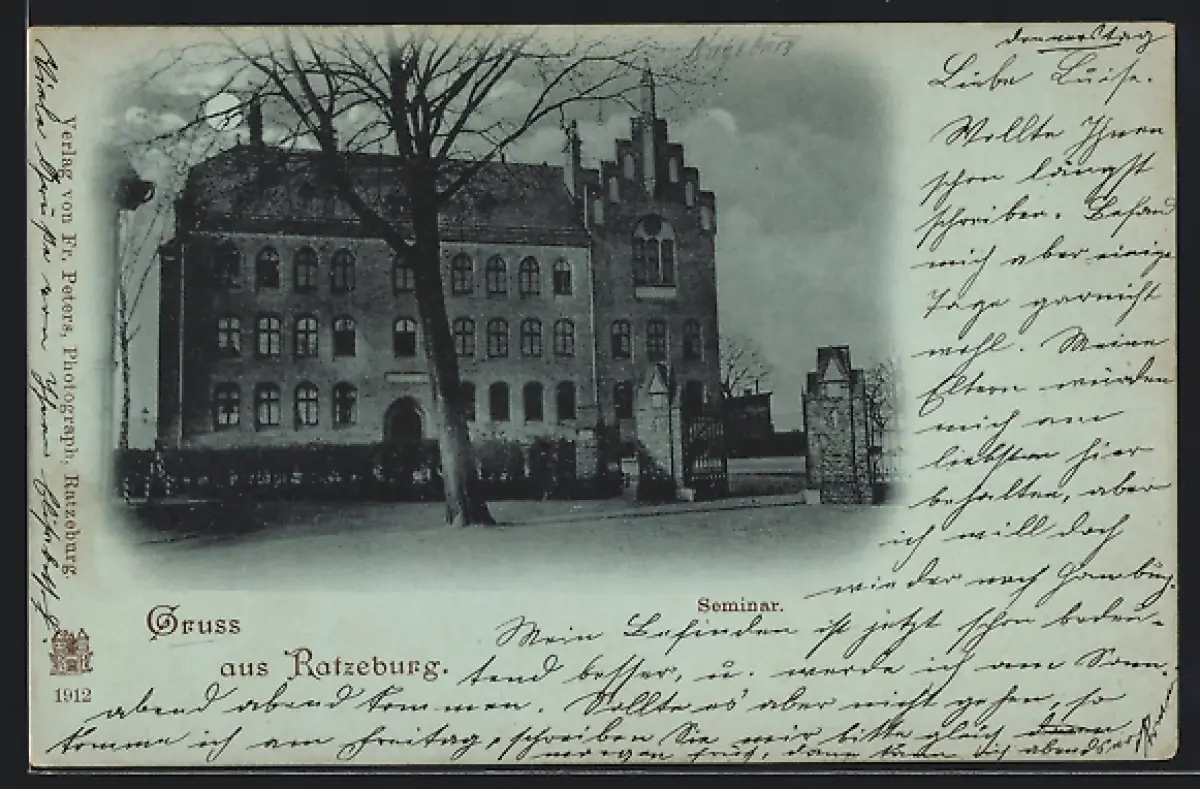 Donnerstag
Liebe Luise.
Wollte Ihnen
schon längst
schreiben. Befand
mich aber einige
Tage garnicht
wohl. Meine
Eltern würden
mich am
liebsten hier
behalten, aber
ich will doch
wieder nach Hamburg.
Mein Befinden ist jetzt schon bedeu-
tend besser, u. werde ich am Sonn-
abend abend kommen. Sollte es aber nicht gehen, so
komme ich am Freitag, schreiben Sie mir bitte gleich
morgen früh, dann kann ich abends
Viele Grüße von Ihrer
Verlag von Fr. Peters, Photograph, Ratzeburg.
Seminar.
Gruss
aus Ratzeburg.
1912